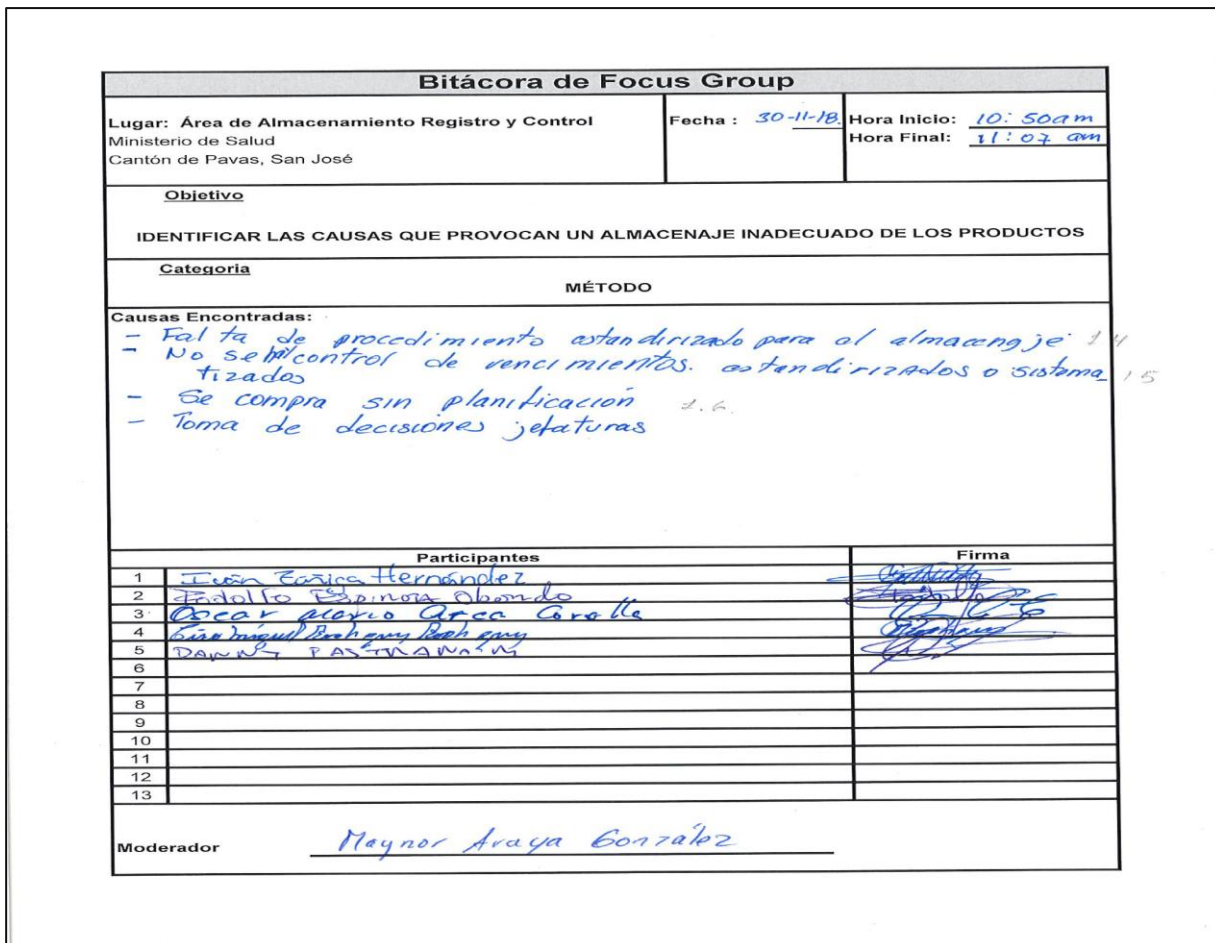 Bitácora de Focus Group
Lugar: Área de Almacenamiento Registro y Control
Ministerio de Salud
Cantón de Pavas, San José
Fecha : 30-11-18.
Hora Inicio: 10:50am
Hora Final: 11:07 am
Objetivo
IDENTIFICAR LAS CAUSAS QUE PROVOCAN UN ALMACENAJE INADECUADO DE LOS PRODUCTOS
Categoria
MÉTODO
Causas Encontradas:
- Falta de procedimiento estandirizado para al almacenaje 14
- No se control de vencimientos. estandirizados o sistema 15
tizados
- Se compra sin planificación 1.6.
- Toma de decisiones jefaturas
Participantes Firma
1 Iván Hernández
2 Rodolfo Espinoza Obando
3 Oscar Mario
4 Miguel
5 DANNY
6
7
8
9
10
11
12
13
Moderador Maynor Araya González